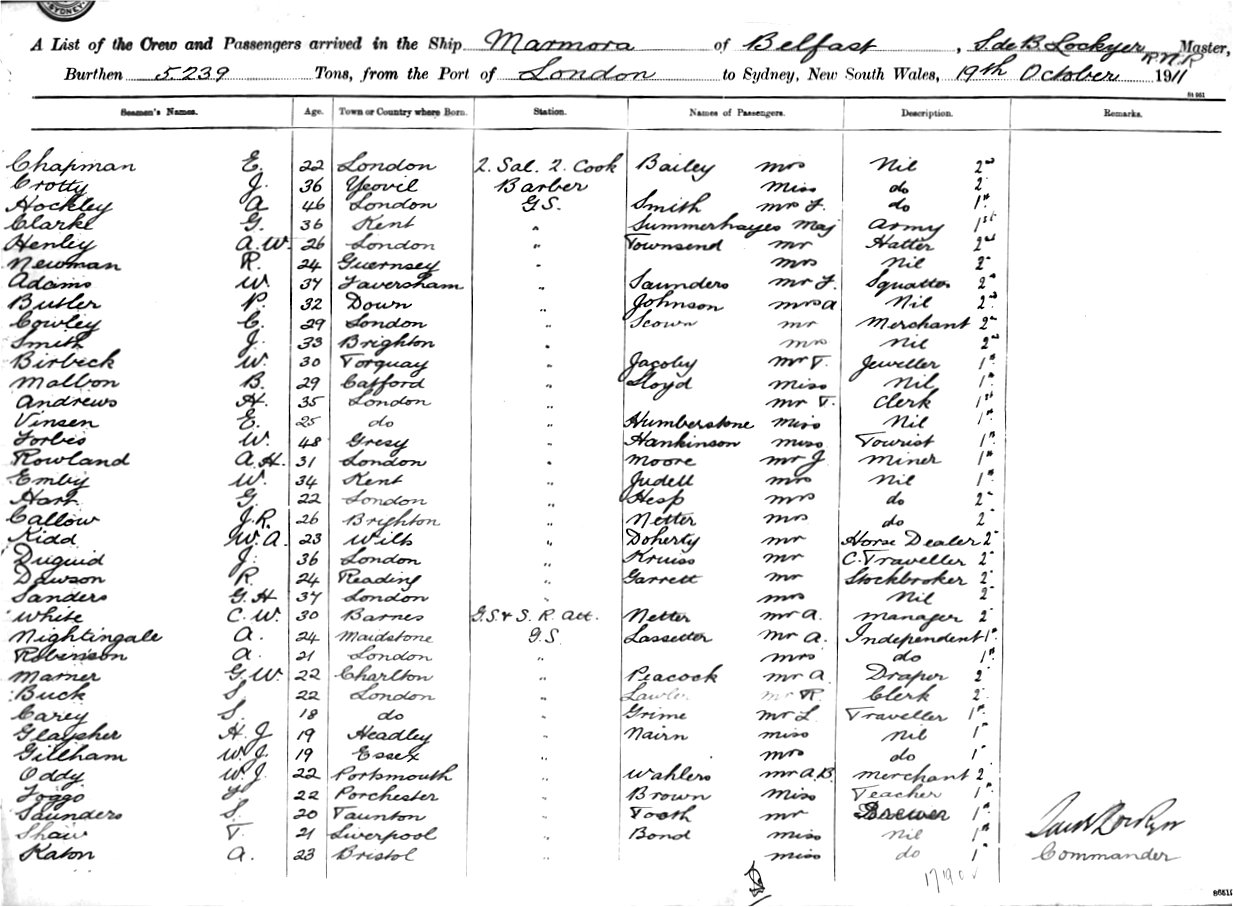 SYDNEY
A List of the Crew and Passengers arrived in the Ship Marmora of Belfast, S. de B. Lockyer R.N.R Master,
Burthen 5.239 Tons, from the Port of London to Sydney, New South Wales, 19th October 1911
Seamen's Names. Age. Town or Country where Born. Station. Names of Passengers. Description. Remarks.
Chapman E. 22 London 2. Sal. 2. Cook Bailey Mrs Nil 2nd
Crotty J. 36 Yeovil Barber Miss do 2
Hockley A 46 London G.S. Smith Mrs F. do 1st
Clarke G. 36 Kent " Summerhayes Maj Army 1st
Henley A.W. 26 London " Townsend Mr Hatter 2nd
Newman R. 24 Guernsey " Mrs Nil 2
Adams W. 37 Faversham " Saunders Mr F. Squatter 2nd
Butler P. 32 Down " Johnson Mrs A Nil 2nd
Cowley C. 29 London " Scown Mr Merchant 2nd
Smith J. 33 Brighton " Mrs Nil 2nd
Birbeck W. 30 Torquay " Jacoby Mr T. Jeweller 1st
Malbon B. 29 Catford " Lloyd Miss Nil 1st
Andrews H. 35 London " Mr T. Clerk 1st
Vinsen E. 25 do " Humberstone Miss Nil 1st
Forbes W. 48 Gresy " Hankinson Miss Tourist 1st
Rowland A.H. 31 London " Moore Mr J Miner 1st
Emby W. 34 Kent " Judell Mrs Nil 1st
Hart G. 22 London " Hesp Mrs do 2
Callow J.R. 26 Brighton " Netter Mrs do 2
Kidd W.A. 23 Wilts " Doherty Mr Horse Dealer 2
Duguid J. 36 London " Kruiss Mr C. Traveller 2
Dawson R. 24 Reading " Garrett Mr Stockbroker 2
Sanders G.H 37 London " Mrs Nil 2
White C.W. 30 Barnes G.S. & S.R. Att. Netter Mr A. Manager 2
Nightingale A. 24 Maidstone G.S. Lassetter Mr A. Independent 1st
Robinson A. 21 London " Mrs do 1st
Marner G.W 22 Charlton " Peacock Mr A Draper 2
Buck S. 22 London " Lawler Mr R. Clerk 2
Carey S. 18 do " Grime Mr L Traveller 1st
Glaysher H.J 19 Headley " Nairn Miss Nil 1st
Gillham W.J. 19 Essex " Mrs do 1
Oddy W.J. 22 Portsmouth " Wahlers Mr A.B. Merchant 2
Foggo 22 Porchester " Brown Miss Teacher 1st
Saunders S. 20 Taunton " Tooth Mr Brewer 1st
Shaw T. 21 Liverpool " Bond Miss Nil 1st
Katon A. 23 Bristol " Miss do 1st Commander